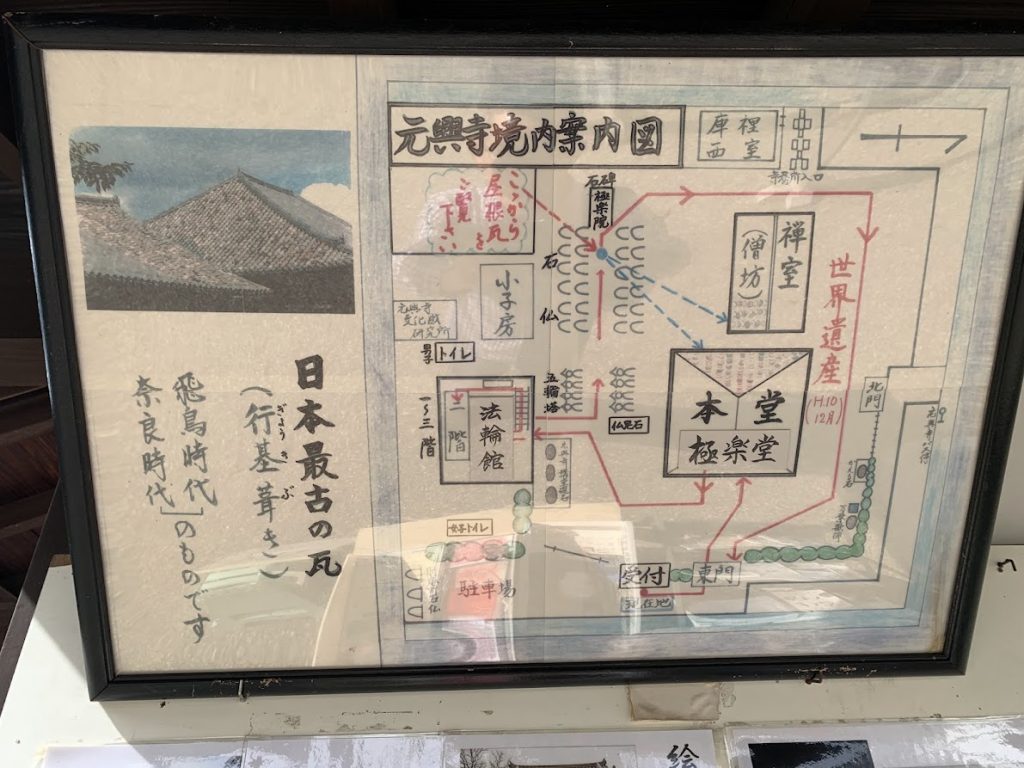 元興寺境内案内図
ここから
屋根瓦を
ご覧
下さい
石碑
極楽院
裡室
庫西
禅室
(僧坊)
世界遺産
(H.10
12月)
小子房
石仏
元興寺
文化財
研究所
トイレ
五輪塔
仏足石
法輪館
二階
一~三階
本堂
極楽堂
北門
女子トイレ
駐車場
受付
東門
現在地
日本最古の瓦
(行基葺き)
ぎょうきぶ
飛鳥時代
奈良時代
のものです
絵